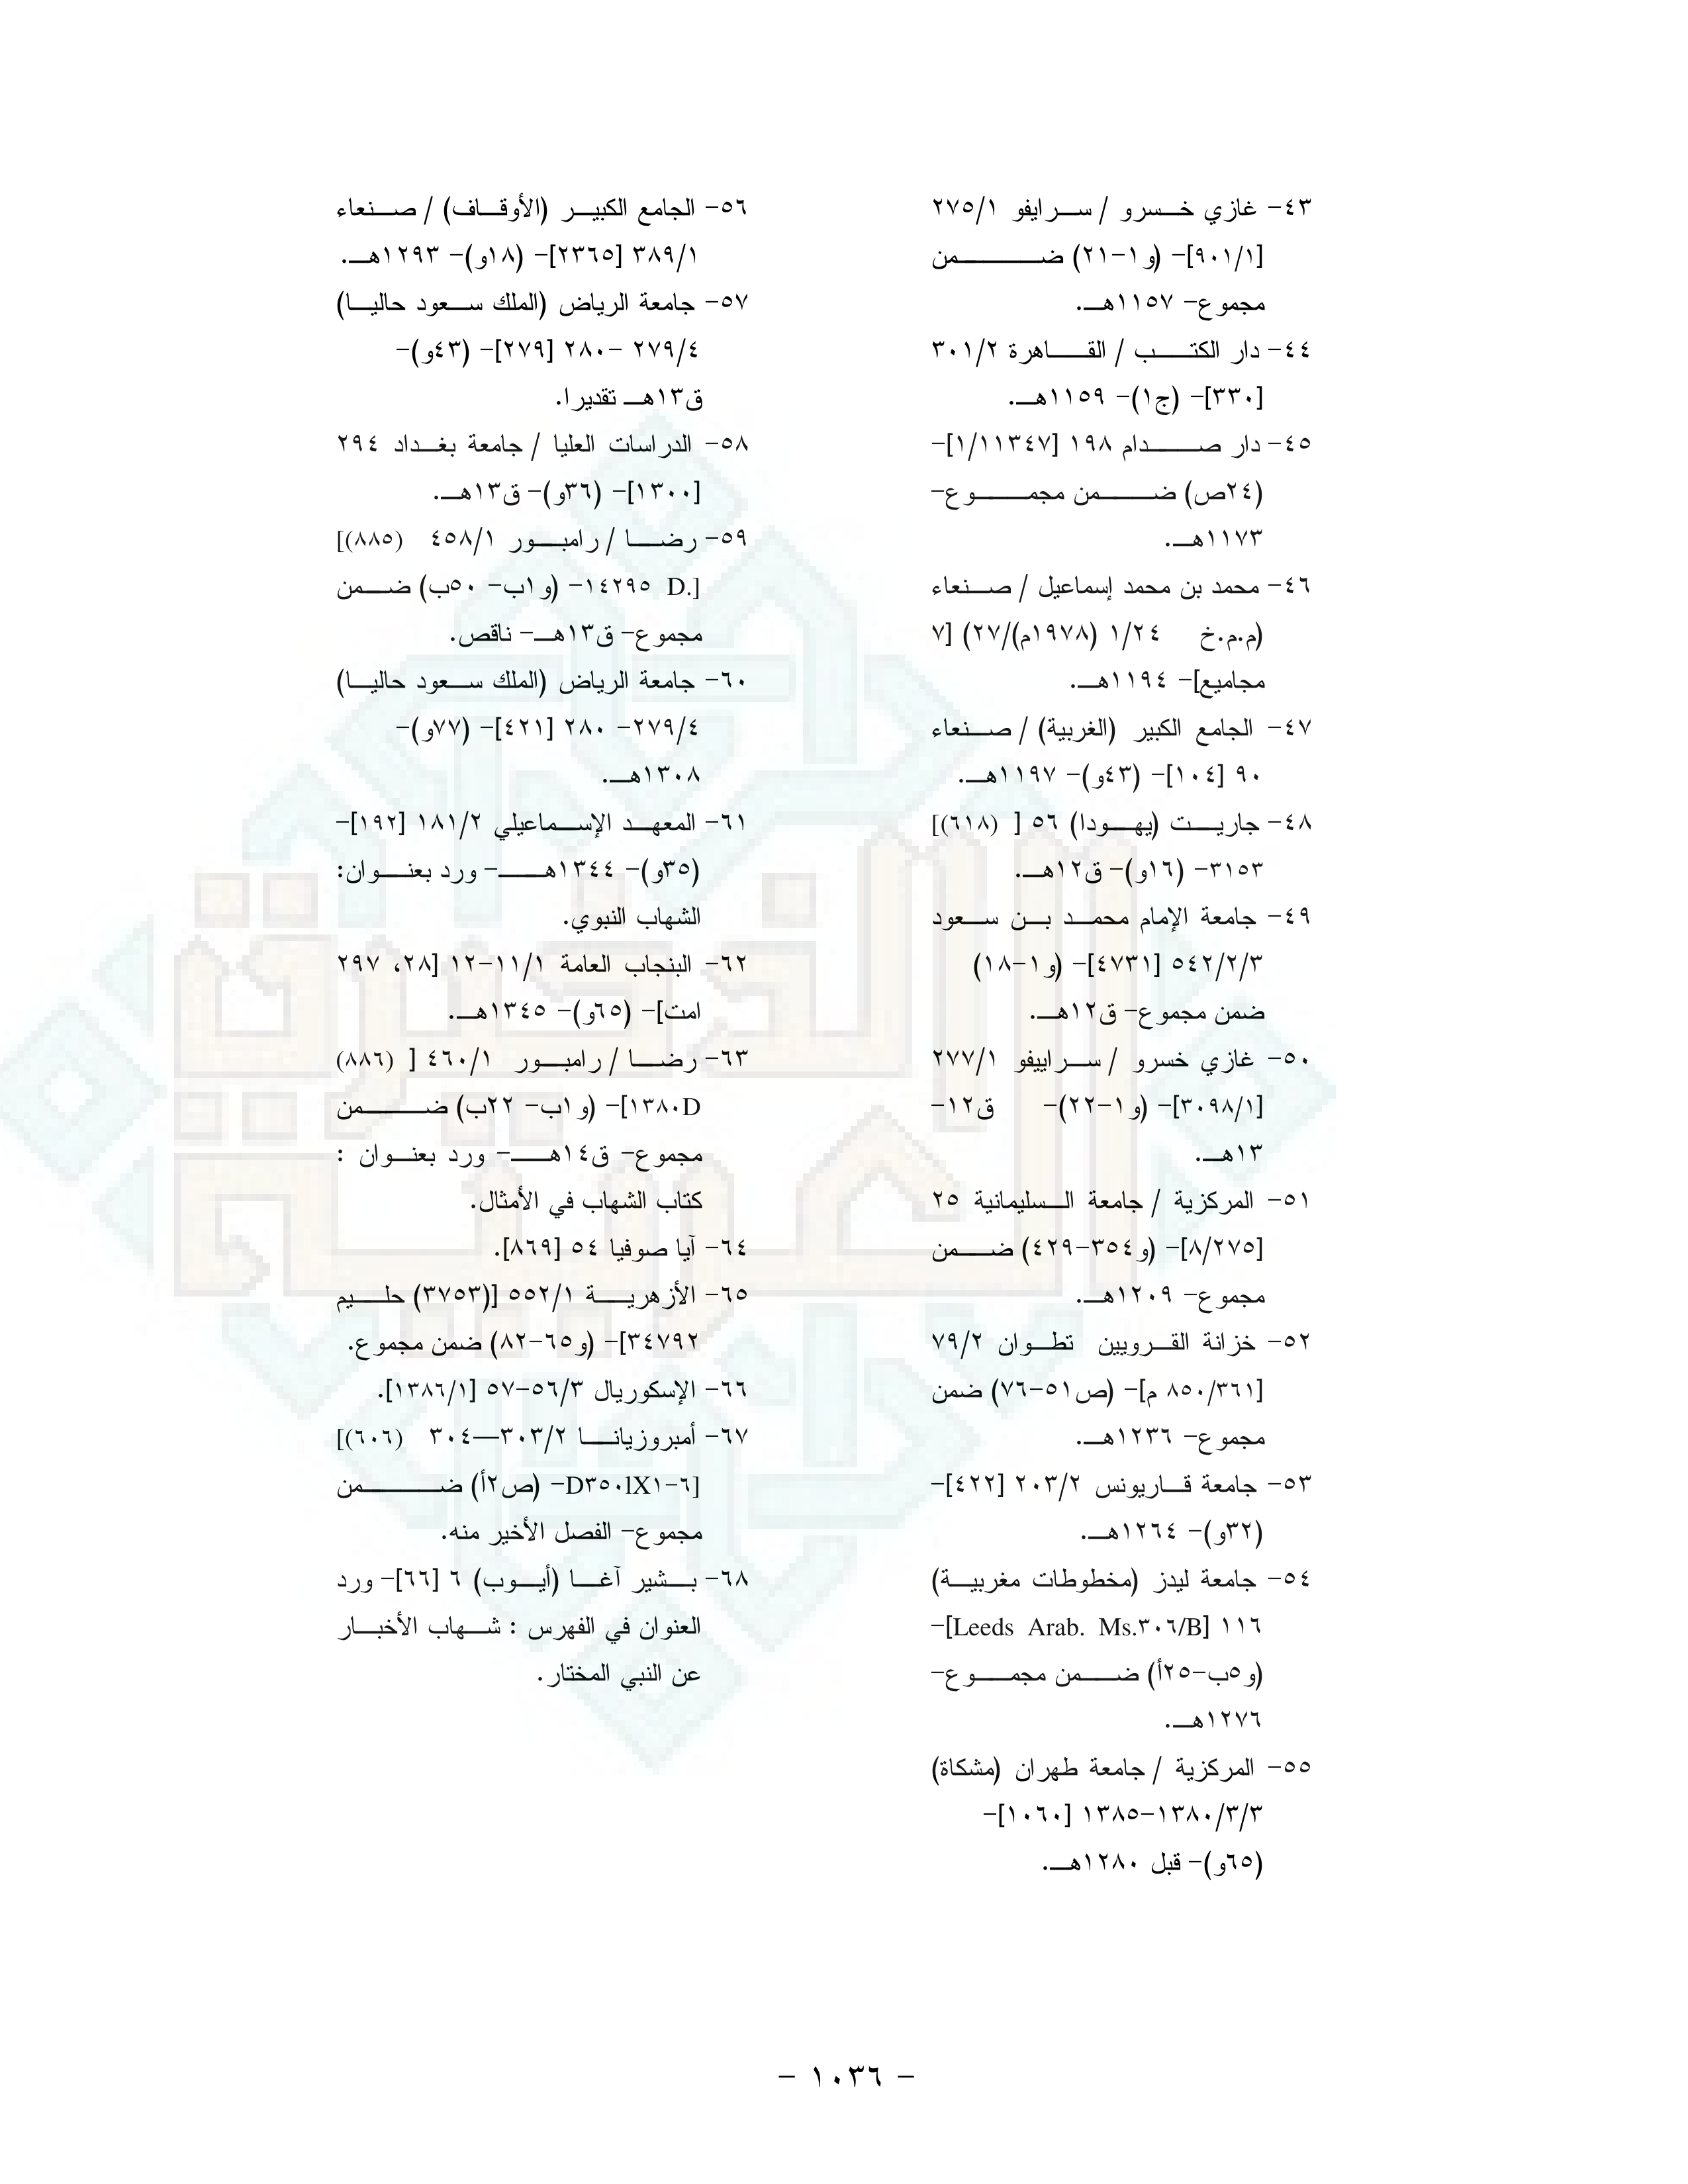 ٤٣- غازي خسرو / سرايفو ٢٧٥/١
[٩٠١/١]- (و١-٢١) ضمن
مجموع- ١١٥٧هـ.
٤٤- دار الكتب / القاهرة ٣٠١/٢
[٣٣٠]- (ج١)- ١١٥٩هـ.
٤٥- دار صدام ١٩٨ [١/١١٣٤٧]-
(٢٤ص) ضمن مجموع-
١١٧٣هـ.
٤٦- محمد بن محمد إسماعيل / صنعاء
(م.م.خ ١/٢٤ (١٩٧٨م)/٢٧) [٧
مجاميع]- ١١٩٤هـ.
٤٧- الجامع الكبير (الغربية) / صنعاء
٩٠ [١٠٤]- (٤٣و)- ١١٩٧هـ.
٤٨- جاريت (يهودا) ٥٦ [ (٦١٨)]
٣١٥٣- (١٦و)- ق١٢هـ.
٤٩- جامعة الإمام محمد بن سعود
٥٤٢/٢/٣ [٤٧٣١]- (و١-١٨)
ضمن مجموع- ق١٢هـ.
٥٠- غازي خسرو / سراييفو ٢٧٧/١
[٣٠٩٨/١]- (و١-٢٢)- ق١٢-
١٣هـ.
٥١- المركزية / جامعة السليمانية ٢٥
[٨/٢٧٥]- (و٣٥٤-٤٢٩) ضمن
مجموع- ١٢٠٩هـ.
٥٢- خزانة القرويين تطوان ٧٩/٢
[٨٥٠/٣٦١ م]- (ص٥١-٧٦) ضمن
مجموع- ١٢٣٦هـ.
٥٣- جامعة قاريونس ٢٠٣/٢ [٤٢٢]-
(٣٢و)- ١٢٦٤هـ.
٥٤- جامعة ليدز (مخطوطات مغربية)
١١٦ [Leeds Arab. Ms.٣٠٦/B]-
(و٥ب-٢٥أ) ضمن مجموع-
١٢٧٦هـ.
٥٥- المركزية / جامعة طهران (مشكاة)
١٣٨٠/٣/٣-١٣٨٥ [١٠٦٠]-
(٦٥و)- قبل ١٢٨٠هـ.
٥٦- الجامع الكبير (الأوقاف) / صنعاء
٣٨٩/١ [٢٣٦٥]- (١٨و)- ١٢٩٣هـ.
٥٧- جامعة الرياض (الملك سعود حاليا)
٢٧٩/٤ -٢٨٠ [٢٧٩]- (٤٣و)-
ق١٣هـ تقديرا.
٥٨- الدراسات العليا / جامعة بغداد ٢٩٤
[١٣٠٠]- (٣٦و)- ق١٣هـ.
٥٩- رضا / رامبور ٤٥٨/١ (٨٨٥)]
[.D ١٤٢٩٥- (و١ب- ٥٠ب) ضمن
مجموع- ق١٣هـ- ناقص.
٦٠- جامعة الرياض (الملك سعود حاليا)
٢٧٩/٤- ٢٨٠ [٤٢١]- (٧٧و)-
١٣٠٨هـ.
٦١- المعهد الإسماعيلي ١٨١/٢ [١٩٢]-
(٣٥و)- ١٣٤٤هـ- ورد بعنوان:
الشهاب النبوي.
٦٢- البنجاب العامة ١١/١-١٢ [٢٨، ٢٩٧
امت]- (٦٥و)- ١٣٤٥هـ.
٦٣- رضا / رامبور ٤٦٠/١ [ (٨٨٦)
١٣٨٠D]- (و١ب- ٢٢ب) ضمن
مجموع- ق١٤هـ- ورد بعنوان :
كتاب الشهاب في الأمثال.
٦٤- آيا صوفيا ٥٤ [٨٦٩].
٦٥- الأزهرية ٥٥٢/١ [(٣٧٥٣) حليم
٣٤٧٩٢]- (و٦٥-٨٢) ضمن مجموع.
٦٦- الإسكوريال ٥٦/٣-٥٧ [١٣٨٦/١].
٦٧- أمبروزيانا ٣٠٣/٢—٣٠٤ (٦٠٦)]
[D٣٥٠lX١-٦- (ص٢أ) ضمن
مجموع- الفصل الأخير منه.
٦٨- بشير آغا (أيوب) ٦ [٦٦]- ورد
العنوان في الفهرس : شهاب الأخبار
عن النبي المختار.
- ١٠٣٦ -